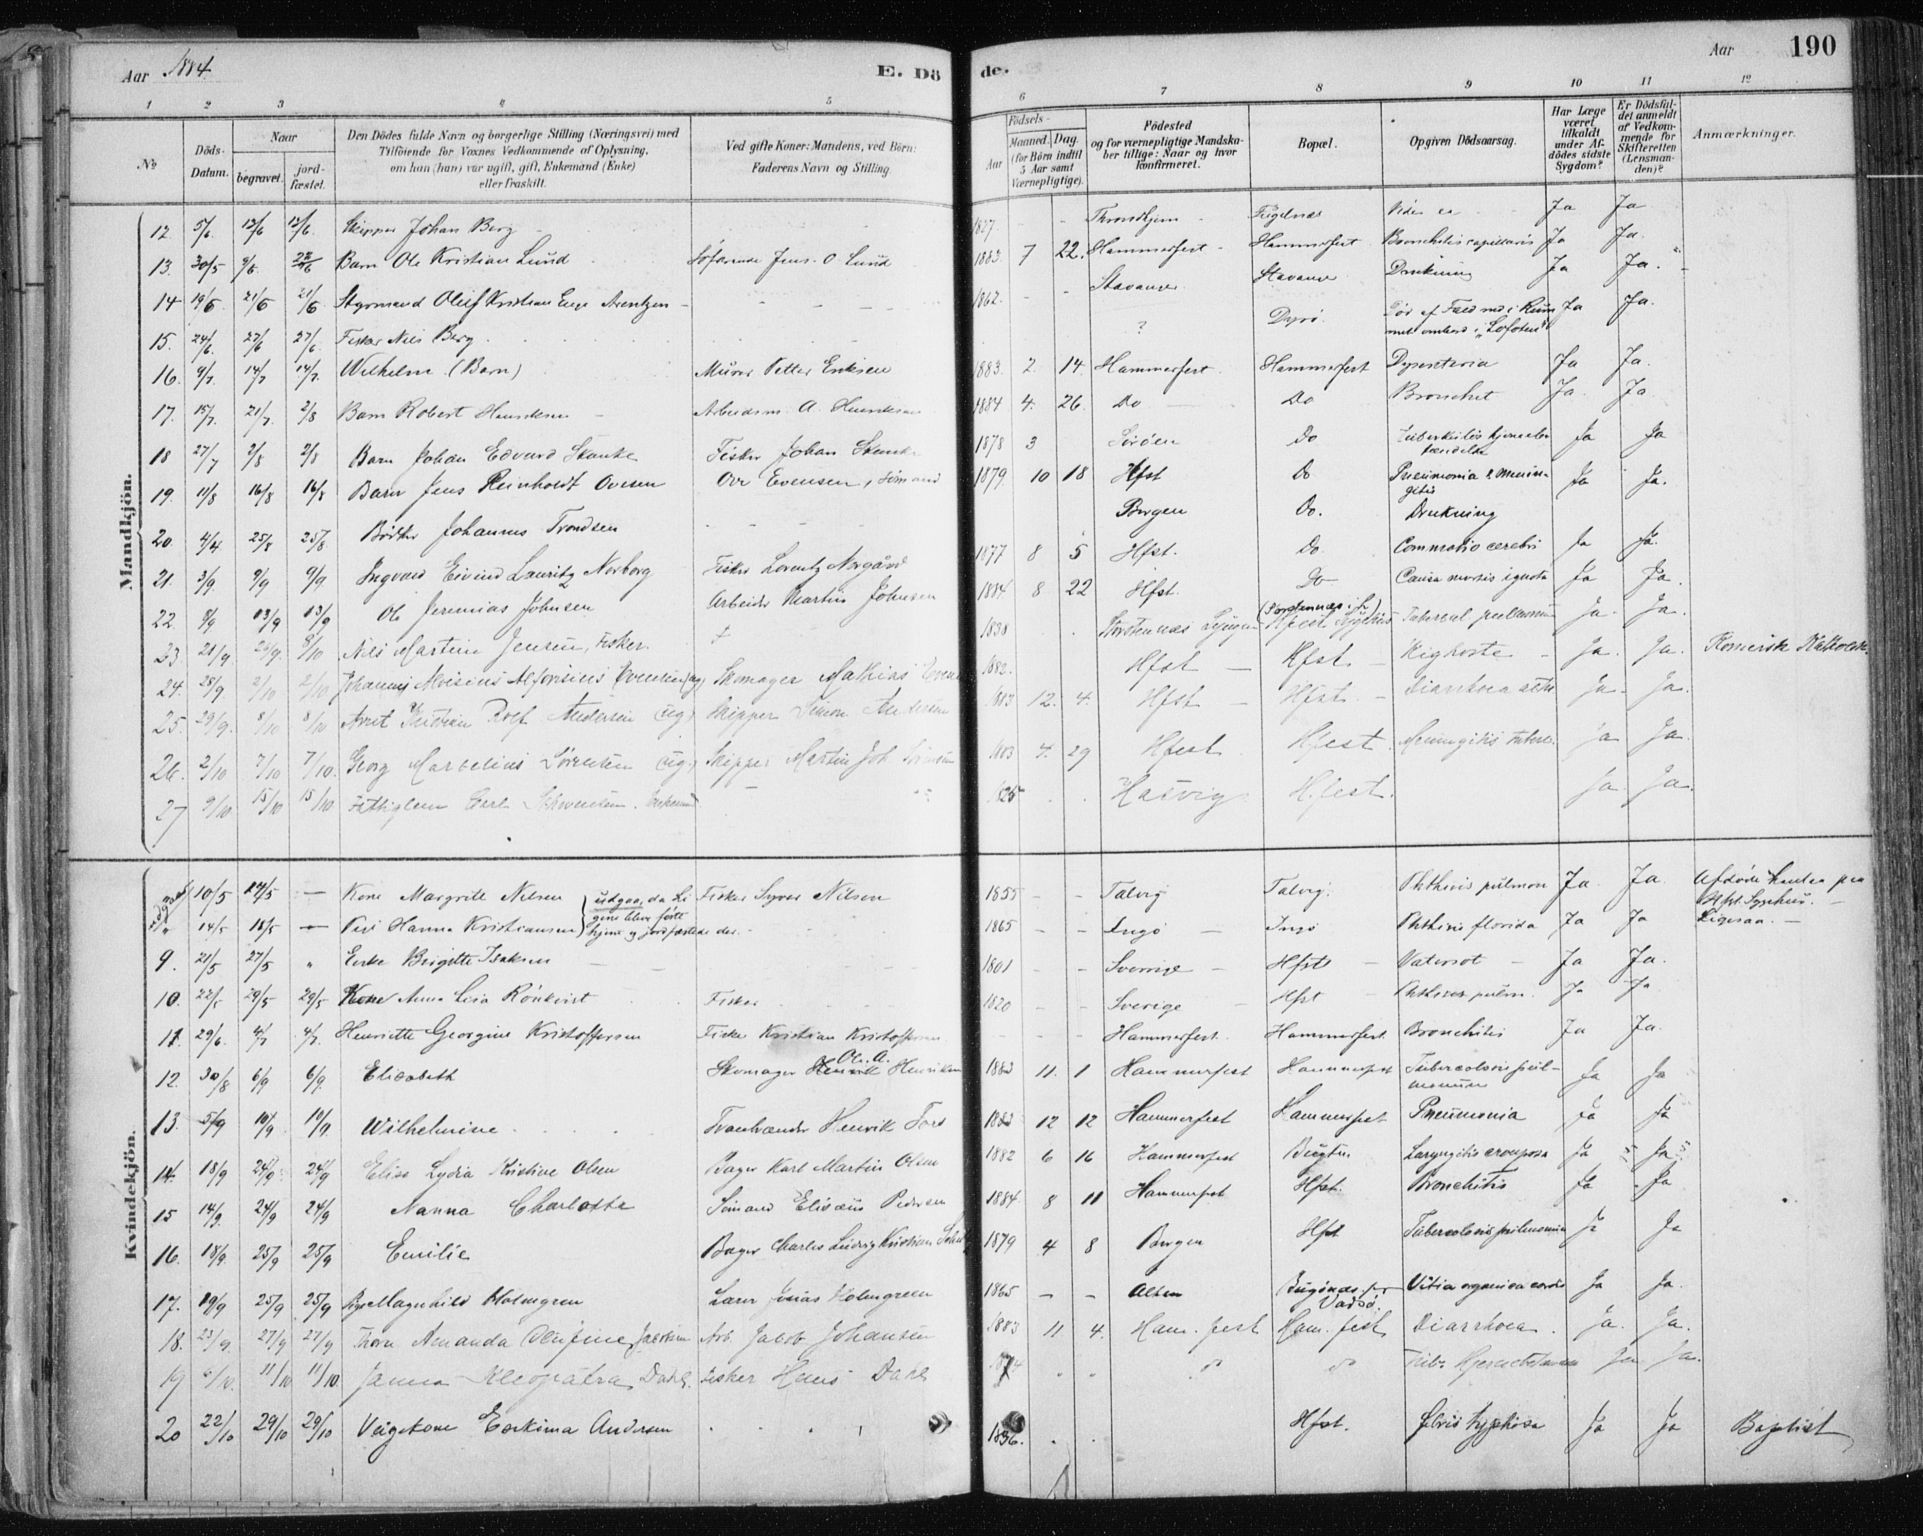 Aar 1884.
E. Dö
de.
Aar
190
1 2 3 4 5 6 7 8 9 10 11 12
No
Döds-Datum.
Naar
begravet.
jord-fæstet.
Den Dödes fulde Navn og borgerlige Stilling (Næringsvei) med
Tilföiende for Voxnes Vedkommende af Oplysning,
om han (hun) var ugift, gift, Enkemand (Enke)
eller fraskilt.
Ved gifte Koner: Mandens, ved Börn:
Faderens Navn og Stilling.
Födsels-
Aar
Maaned. Dag.
(for Börn indtil
5 Aar samt
Værnepligtige).
Födested
og for værnepligtige Mandska-
ber tillige: Naar og hvor
konfirmeret.
Bopæl.
Opgiven Dödsaarsag.
Har Læge
været
tilkaldt
under Af-
dödes sidste
Sygdom?
Er Dödsfal-
det anmeldt
af Vedkom-
mende for
Skifteretten
(Lensman-
den)?
Anmærkninger.
Mandkjön.
12. 5/6. 13/6 13/6. Skipper Johan Berg 1827. - Throndhjem Fuglenæs Ja Ja
13. 30/5 Barn Ole Kristian Lund Søfarende Jens O. Lund 1883. 7 22. Hammerfest Hammerfest Bronchitis capillaris Ja Ja.
14 19/6. 21/6 21/6 Styrmand Oluf Kristian Arentzen 1862. Stavanger Stavanger Drukning Ja Ja.
15. 24/6. 27/6 27/6. Fisker Nils Berg ? Dyrø. Død af Fald ned i Rum
met ombord i "Lofoten" Ja Ja.
16. 9/7. 14/7 14/7. Wilhelm (Barn) Murer Petter Eriksen 1883. 2. 14. Hammerfest Hammerfest Dysenteria Ja Ja.
17. 15/7. 21/7. 2/8 Barn Robert Henriksen Arbeidsm. A. Henriksen 1884 4. 26. Do Do Bronchit Ja. Ja.
18 27/7 2/8 2/8 Barn Johan Edvard Skanke Fisker Johan Skanke 1878 3 Sørøen Do Ja Ja
19. 11/8 16/8 16/8 Barn Jens Reinholdt Ovesen Ove Evensen, Sømand 1879 10 18 Hfst Do Pneumonia & Menin-
gitis Ja Ja.
20 4/4 25/8 25/8 Bødker Johannes Trondsen Bergen Do. Drukning
21. 3/9. 9/9 9/9 Ingvald Eivind Lauritz Norborg Fisker Lorentz Norgård 1877 8 5 Hfst. Do Commotio cerebri Ja Ja.
22. 8/9 13/9 13/9 Ole Jeremias Johnsen Arbeider Martin Johnsen 1884. 8 22 Hfst. Do Causa mortis ignota Ja Ja.
23. 21/9. 8/10 Nils Martin Jensen, Fisker. 1838 Storstennæs Lyngen Ja. Ja.
24. 28/9 2/10 2/10 Skomager Mathias 1882. Hfst Hfst Kighoste Ja. Ja. Romersk Katholsk.
25. 29/9. 8/10 8/10 Skipper Simon Andersen 1883 12. 4. Hfst Hfst. Ja. Ja.
26. 2/10 7/10 7/10. Georg Marselius Sørensen Skipper Martin Joh. Sørensen 1883 4. 29 Hfest Hfest. Meningitis tuberc. Ja Ja.
27 9/10 15/10 15/10 1825 Hasvig Hfest. Ja Ja.
Kvindekjön.
10/5 17/5 — Kone Margrete Nilsen Fisker Syver Nilsen 1855 Talvig Talvig. Phthisis pulmon Ja. Ja. Afdøde hentes paa
Hfst. Sygehus.
udgaar, da Li
gene blev førte
hjem og jordfæstede der.
" 14/5 18/5 — Pige Hanna Kristiansen 1865 Ingø Ingø Phthisis florida Ja Ja Ligesaa.
9. 21/5 27/5 " Enke Brigitte Isaksen 1801 Sverrige Hfst Vatersot Ja Ja.
10. 22/5 29/5 29/5 Kone Anna Lisa Rönkvist Fisker 1820 Sverige Hfst Phthisis pulm. Ja Ja
11. 29/6. 4/7 4/7. Henriette Georgine Kristoffersen Fisker Kristian Kristoffersen Hammerfest. Hammerfest Bronchitis Ja Ja.
12. 30/8 6/9 6/9. Elisabeth Skomager Ole A. Henriksen 1883 11. 1 Hammerfest Hammerfest Tuberculosis pul-
monum Ja Ja
13. 5/9 10/9. 10/9. Wilhelmine Henrik 1883 12 12 Hammerfest Hammerfest Pneumonia Ja Ja
14. 18/9 24/9 24/9 Elise Lydia Kristine Olsen Bager Karl Martin Olsen 1882 6 16 Hammerfest Bugten Laryngitis crouposa Ja Ja
15 14/9. 24/9 24/9 Nanna Charlotte Sømand Elisæus Pedersen 1884. 8 11 Hammerfest Hfst. Bronchitis Ja Ja
16. 18/9. 25/9 25/9 Emilie Bager Charles Ludvig Kristian 1879 4 8 Bergen Hfst Tuberculosis pulmonum Ja Ja
17. 19/9 25/9 25/9 Pige Magnhild Holmgren Lærer Josias Holmgreen 1865 — — Alten Bugønæs pr
Vadsø. Vitia organica cordis Ja Ja.
18. 23/9. 27/9 27/9 Thora Amanda Olufine Jacobsen Arb. Jacob Johansen 1883 11 4. Ham.fest Ham.fest Diarrhoea. Ja. Ja.
19 11/10 11/10. Kleopatra Dahl. Fisker Hans Dahl Ja Ja.
20 22/10 29/10 29/10 Andersen 1836. Hfst. febris typhosa Ja Ja Baptist